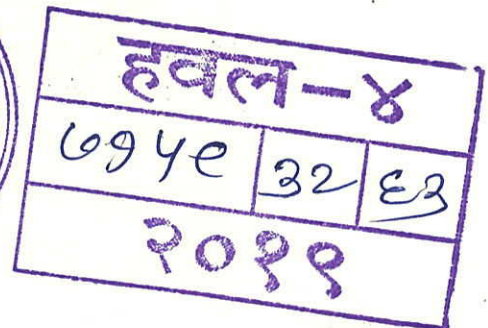 हवल-४
७१५९ ३२ ६३
२०१९